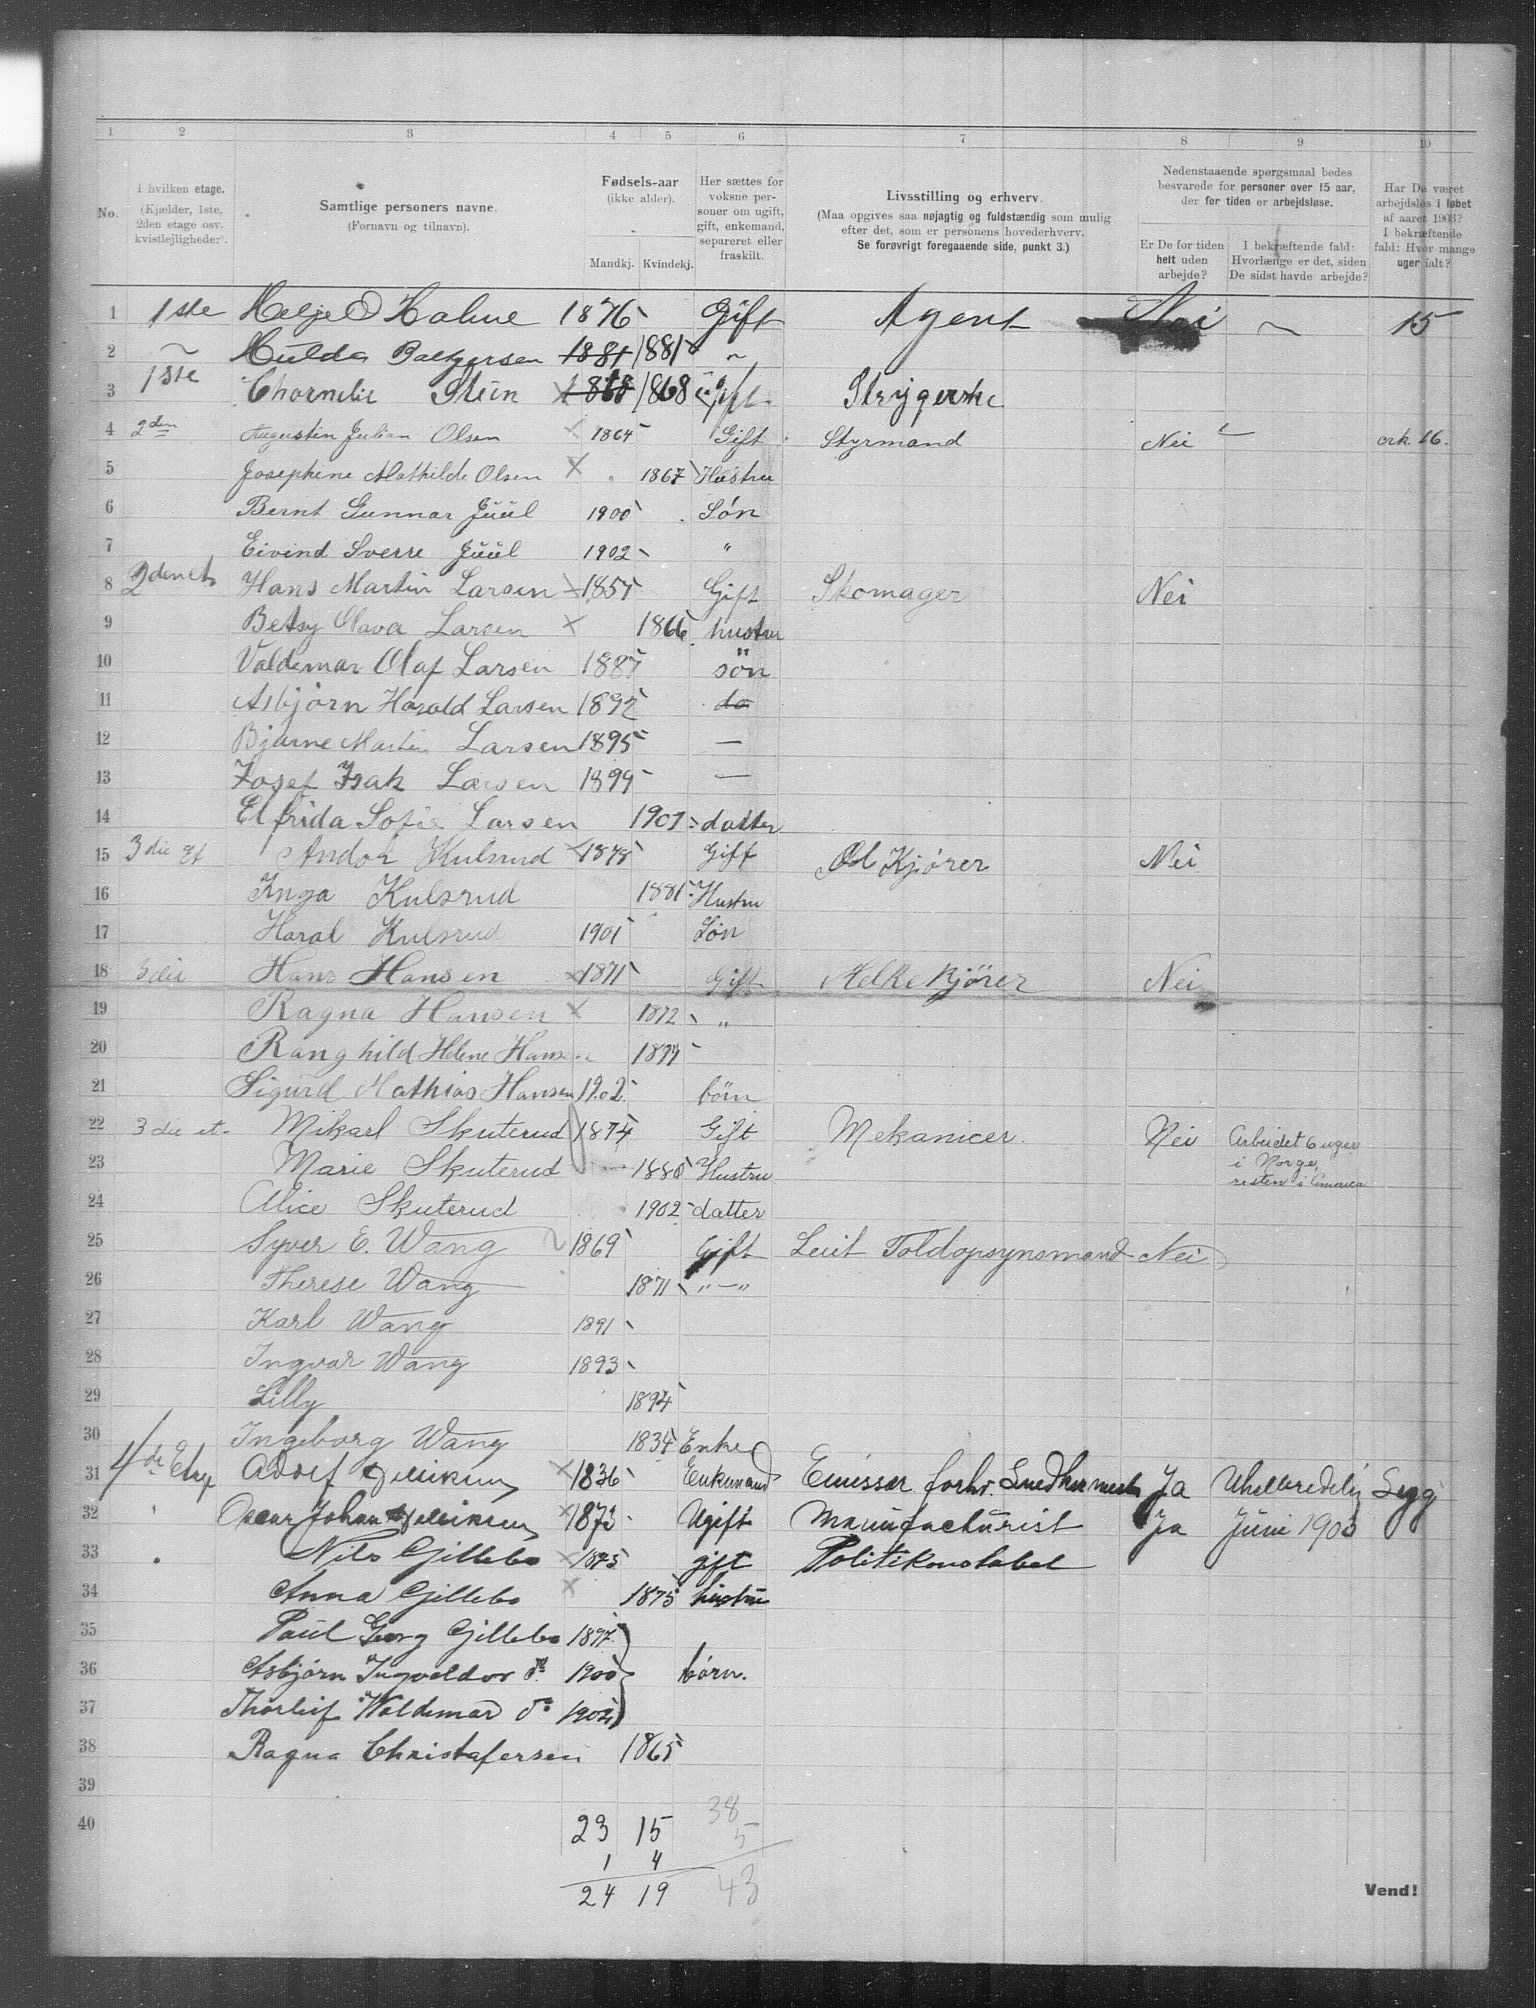 1 2 3 4 5 6 7 8 9 10
No.
I hvilken etage.
(Kjælder, 1ste,
2den etage osv.
kvistlejligheder.
Samtlige personers navne.
(Fornavn og tilnavn).
Fødsels-aar
(ikke alder).
Mandkj. Kvindekj.
Her sættes for
voksne per-
soner om ugift,
gift, enkemand,
separeret eller
fraskilt.
Livsstilling og erhverv.
(Maa opgives saa nøjagtig og fuldstændig som mulig
efter det, som er personens hovederhverv.
Se forøvrigt foregaaende side, punkt 3.)
Nedenstaaende spørgsmaal bedes
besvarede for personer over 15 aar,
der for tiden er arbejdsløse.
Er De for tiden
helt uden
arbejde?
I bekræftende fald:
Hvorlænge er det, siden
De sidst havde arbejde?
Har De været
arbejdsløs i løbet
af aaret 1903?
I bekræftende
fald: Hvor mange
uger ialt?
1 1ste Helje Holme 1876 Gift Agent Nei ~ 15
2 ~ Hulda 1881 1881 "
3 1ste Chornelie Steen 1868 1868 Gift Strygerske
4 2den Augustin Julian Olsen 1864 Gift Styrmand Nei crk. 16.
5 Josephine Mathilde Olsen 1867 Hustru
6 Bernt Gunnar Juul 1900 Søn
7 Eivind Sverre Juul 1902 "
8 2den et Hans Martin Larsen 1857 Gift Skomager Nei
9 Betsy Olava Larsen 1866 hustru
10 Valdemar Olaf Larsen 1887 søn
11 Asbjörn Harald Larsen 1892 do
12 Bjarne Martin Larsen 1895 —
13 Josef Isak Larsen 1899 —
14 Elfrida Sofie Larsen 1901 datter
15 3die Et Andor Kulsrud 1878 Gift Øl Kjører Nei
16 Inga Kulsrud 1881 Hustru
17 Haral Kulsrud 1901 Søn
18 3die Hans Hansen 1871 Gift Melkekjører Nei
19 Ragna Hansen 1872 "
20 Ranghild Helene Hansen
21 Sigurd Mathias Hansen 1902 börn
22 3die et. Mikael Skuterud 1874 Gift Mekanicer. Nei Arbeidet 6 uger
i Norge,
resten i America
23 Marie Skuterud 1880 Hustru
24 Alice Skuterud 1902 datter
25 Syver E. Wang 1869 Gift Toldopsynsmand Nei
26 Therese Wang 1871 " — "
27 Karl Wang 1891
28 Ingvar Wang 1893
29 Lilly 1894
30 Ingeborg Wang 1834 Enke
31 4de Etage Adolf 1836 Enkemand Emissær Ja Syg
32 " Oscar Johan 1873 Ugift Manufacturist Ja Juni 1903
33 " Nils Gillebo 1875 gift Politikonstabel
34 Anna Gillebo 1875 hustru
35 Paul Georg Gillebo 1897
36 Asbjørn Ingvald do 1900 børn.
37 Thorleif Waldemar do 1902
38 Ragna Christofersen 1865
39
40
23 15 38
1 4 5
24 19 43
Vend!